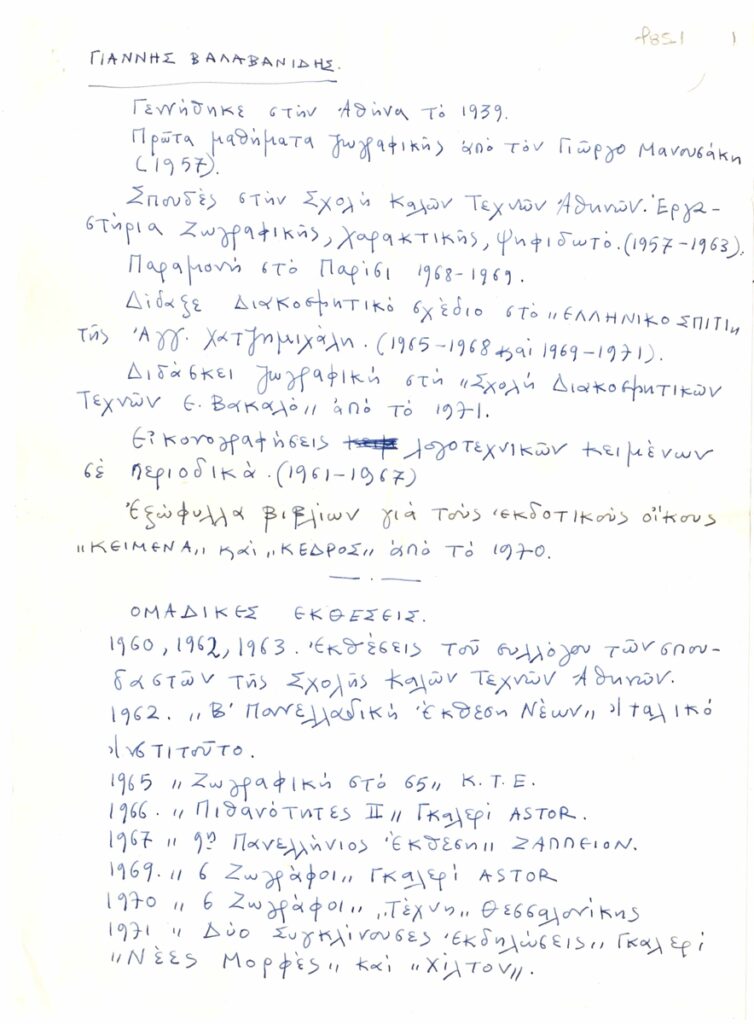 P85.1 1
ΓΙΑΝΝΗΣ ΒΑΛΑΒΑΝΙΔΗΣ.
Γεννήθηκε στήν Ἀθήνα τό 1939.
Πρῶτα μαθήματα ζωγραφικῆς ἀπό τόν Γιῶργο Μανουσάκη
(1957).
Σπουδές στήν Σχολή Καλῶν Τεχνῶν Ἀθηνῶν. Ἐργα-
στήρια Ζωγραφικῆς, χαρακτικῆς, ψηφιδωτό. (1957-1963).
Παραμονή στό Παρίσι 1968-1969.
Δίδαξε Διακοσμητικό σχέδιο στό "ΕΛΛΗΝΙΚΟ ΣΠΙΤΙ"
τῆς Ἀγγ. Χατζημιχάλη. (1965-1968 καί 1969-1971).
Διδάσκει ζωγραφική στή "Σχολή Διακοσμητικῶν
Τεχνῶν Ε. Βακαλό" ἀπό τό 1971.
Εἰκονογραφήσεις λογοτεχνικῶν κειμένων
σέ περιοδικά. (1961-1967)
Ἐξώφυλλα βιβλίων γιά τούς ἐκδοτικούς οἴκους
"ΚΕΙΜΕΝΑ" καί "ΚΕΔΡΟΣ" ἀπό τό 1970.
ΟΜΑΔΙΚΕΣ ΕΚΘΕΣΕΙΣ.
1960, 1962, 1963. Ἐκθέσεις τοῦ συλλόγου τῶν σπου-
δαστῶν τῆς Σχολῆς Καλῶν Τεχνῶν Ἀθηνῶν.
1962. "Β' Πανελλαδική Ἔκθεση Νέων" Ἰταλικό
Ἰνστιτοῦτο.
1965 "Ζωγραφική στό 65" Κ.Τ.Ε.
1966. "Πιθανότητες II" Γκαλερί ASTOR.
1967 "9η Πανελλήνιος Ἔκθεση" ΖΑΠΠΕΙΟΝ.
1969. "6 Ζωγράφοι" Γκαλερί ASTOR
1970 "6 Ζωγράφοι" "Τέχνη" Θεσσαλονίκης
1971 "Δύο Συγκλίνουσες ἐκδηλώσεις" Γκαλερί
"Νέες Μορφές" καί "Χίλτον".